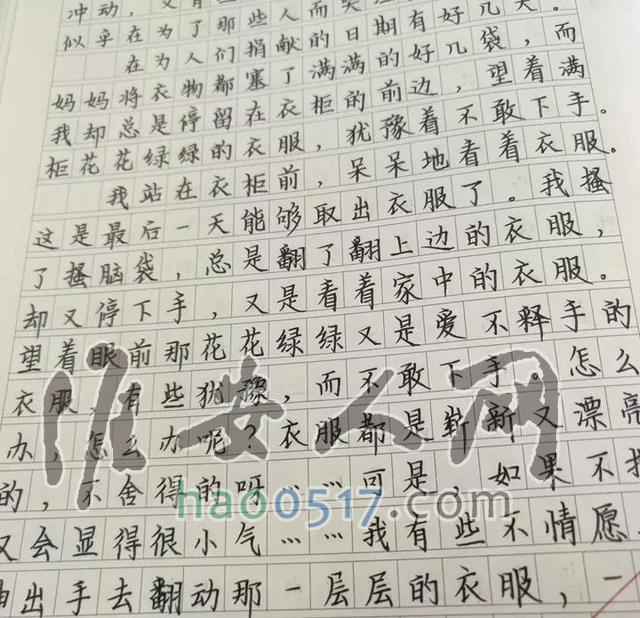 冲动，又有
似乎在为了那些人而
在为人们捐献的日期有好几天。
妈妈将衣物都塞了满满的好几袋，而
我却总是停留在衣柜的前边，望着满
柜花花绿绿的衣服，犹豫着不敢下手。
我站在衣柜前，呆呆地看着衣服。
这是最后一天能够取出衣服了。我搔
了搔脑袋，总是翻了翻上边的衣服，
却又停下手，又是看着家中的衣服。
望着眼前那花花绿绿又是爱不释手的
衣服，有些犹豫，而不敢下手。怎么
办，怎么办呢？衣服都是崭新又漂亮
的，不舍得的呀……可是，如果不
又会显得很小气……我有些不情愿
出手去翻动那一层层的衣服，一
淮安人网
hao0517.com